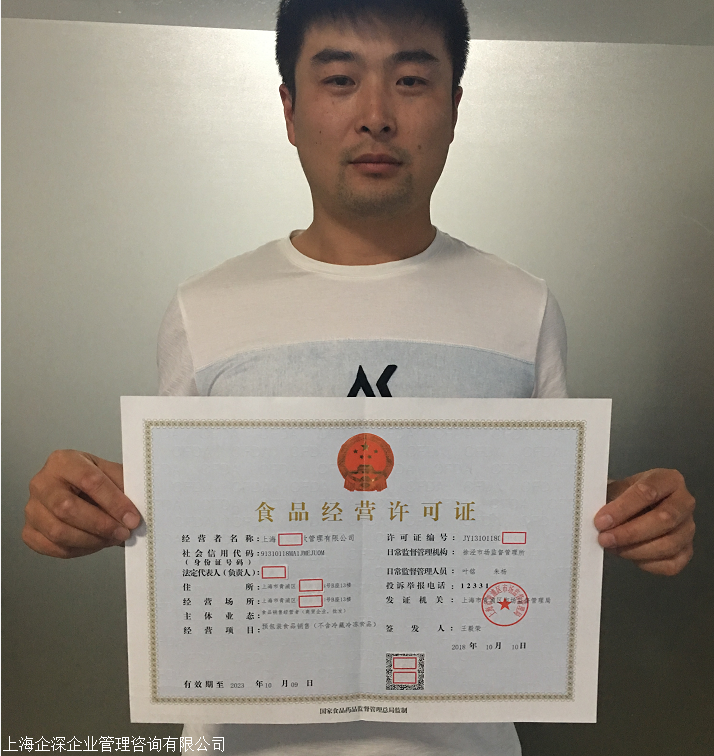 食品经营许可证
经营者名称：上海 管理有限公司
许可证编号：JY1310118
社会信用代码：
（身份证号码）
日常监督管理机构：市场监督管理所
法定代表人（负责人）：
日常监督管理人员：叶 朱杨
住所：上海市青浦区 号B座12楼
投诉举报电话：12331
经营场所：上海市青浦区 号B座12楼
发证机关：上海市青浦区市场监督管理局
主体业态：食品销售经营者
经营项目：预包装食品销售（不含冷藏冷冻食品）
签发人：王毅荣
2018年10月10日
有效期至 2023 年 10 月 09 日
国家食品药品监督管理总局监制
上海企深企业管理咨询有限公司